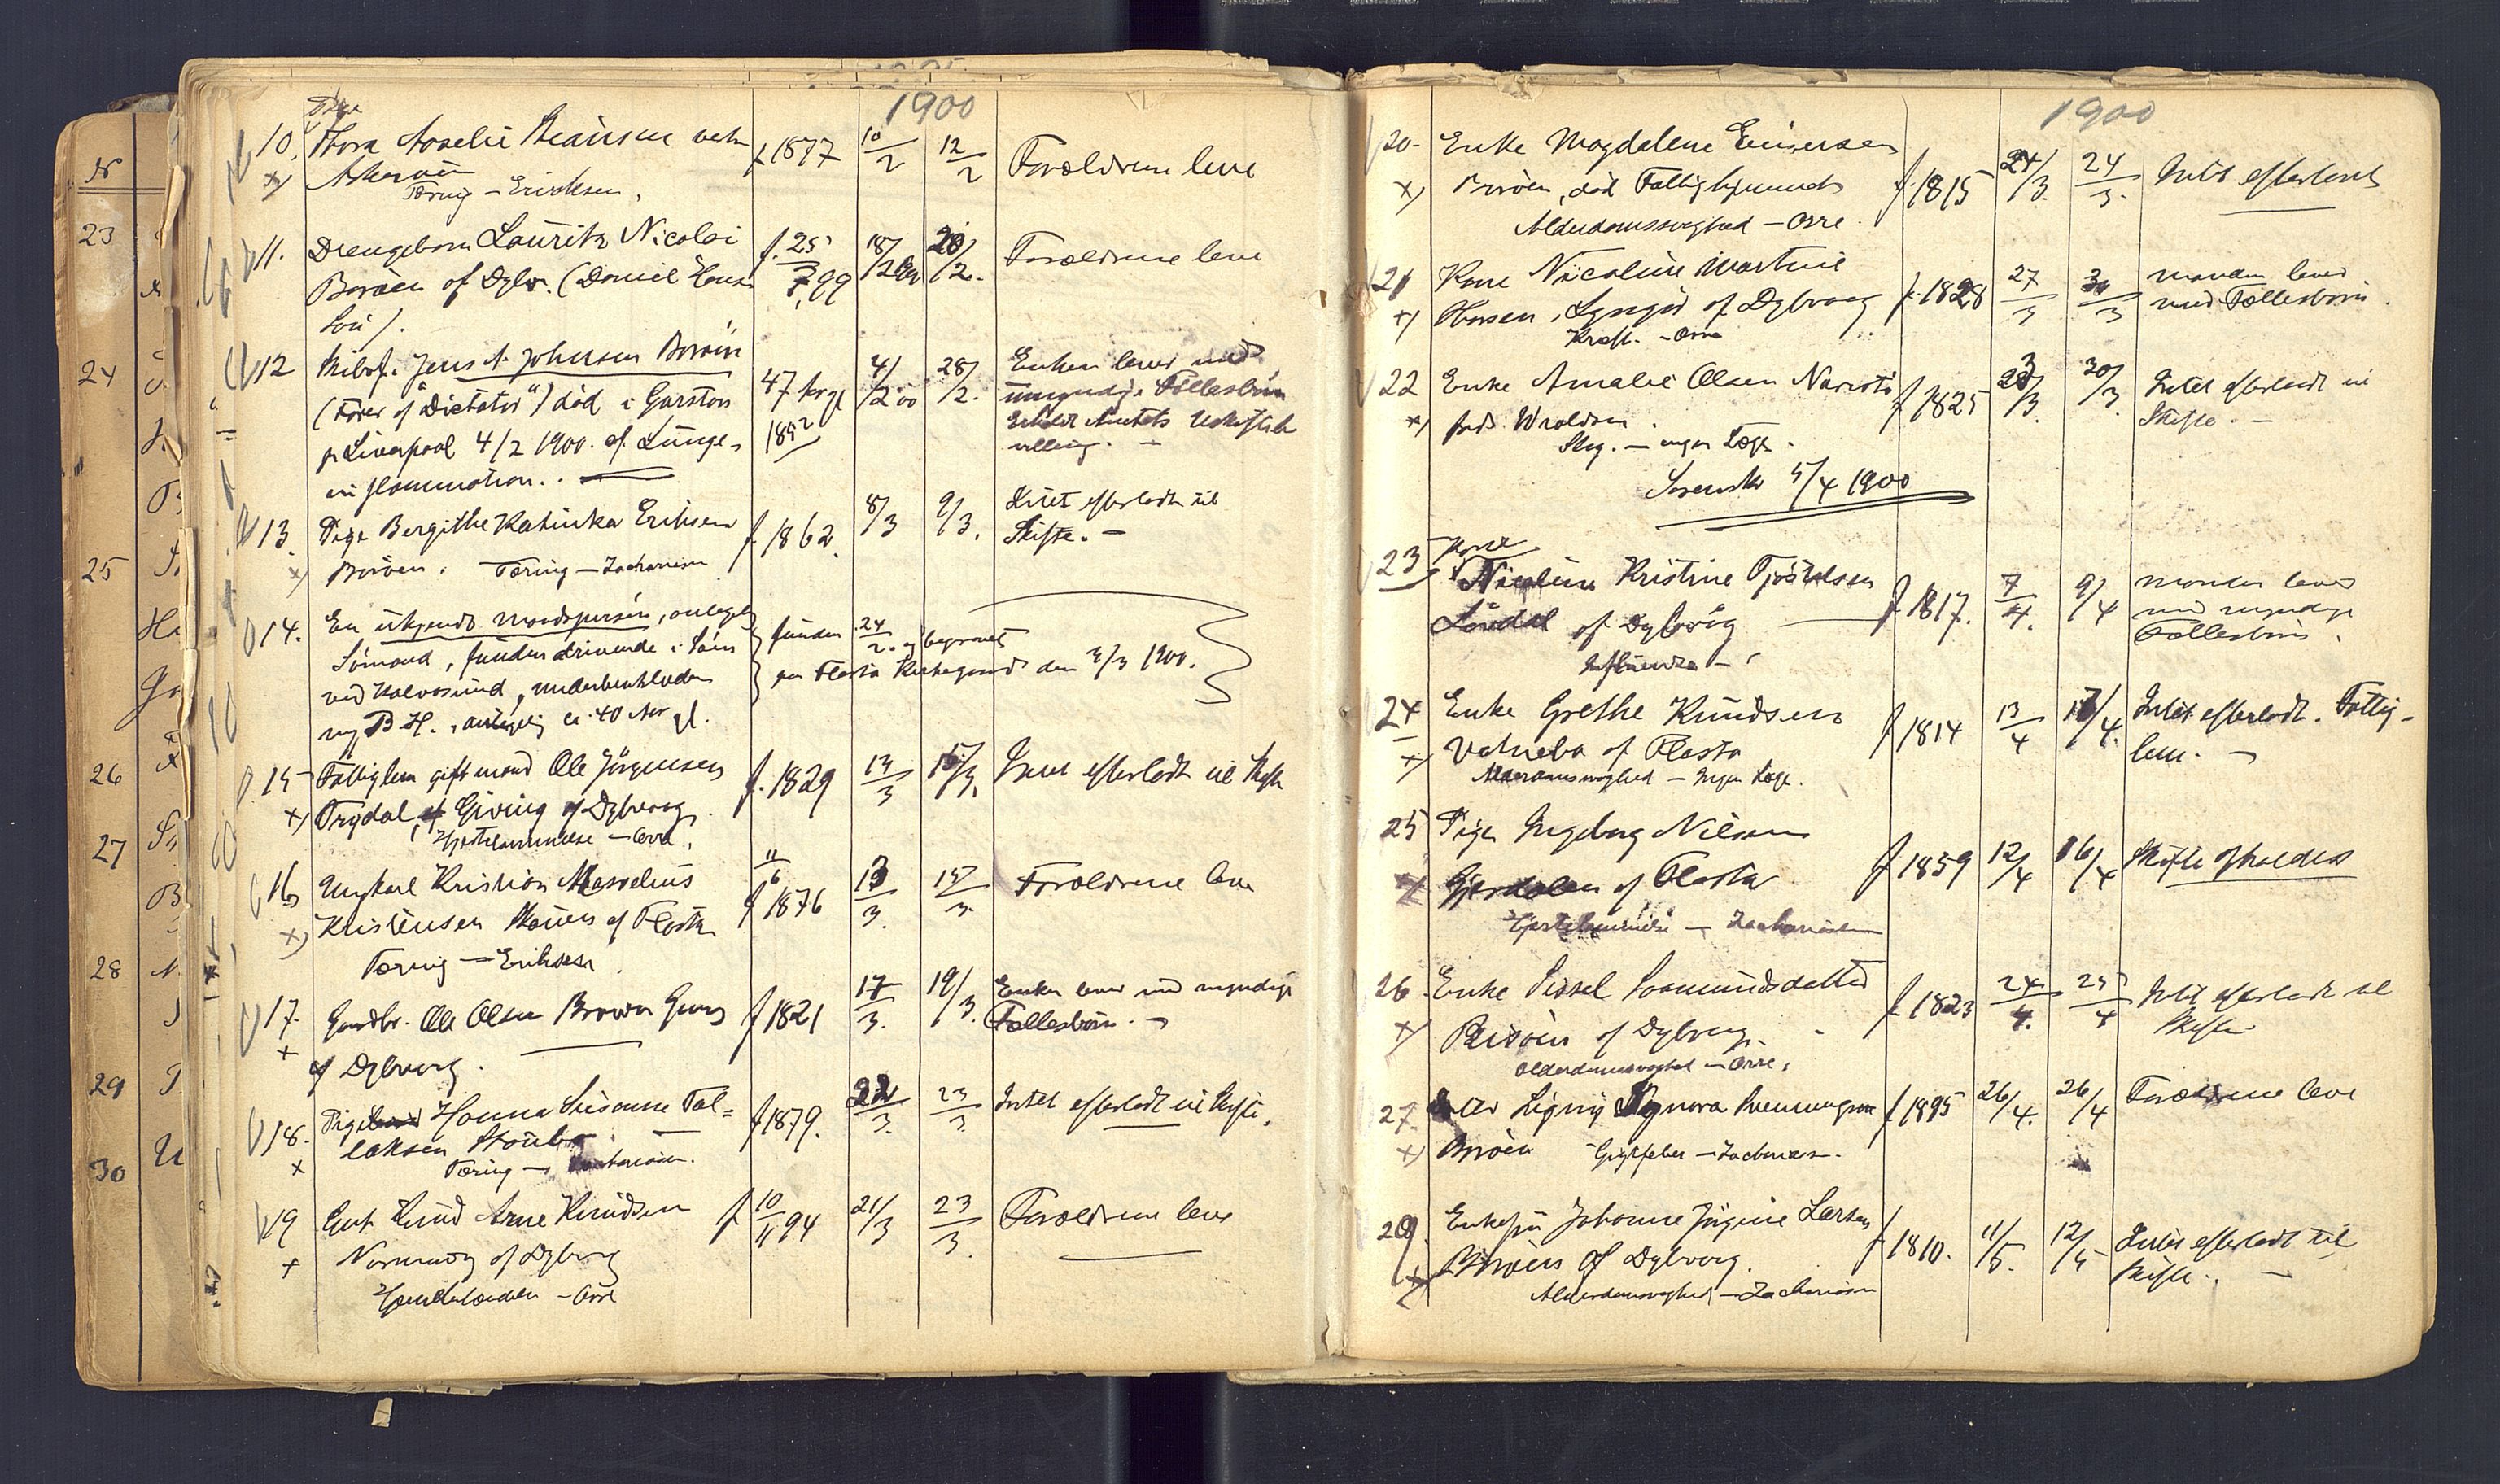 1900
10. Pige Thora Roselie Reiersen
Askerøen f 1877 10/2 12/2 Forældrene leve
Tæring – Ericksen.
11. Drengebarn Lauritz Nicolai f. 25 18/2 20/2. Forældrene leve
Borøen af Dybv. (Daniel 7.99
Søn).
12 Skibsf. Jens A. Johnsen Borøen 47 Aar gl 4/2 00 28/2. Enken lever med
(Fører af "Dictator") død i Garston 1852 umyndige Fællesbørn
pr Liverpool 4/2 1900 af Lunge- Erholdt Amtets Uskiftebe
inflammation. villing. –
13. Pige Bergithe Katinka Eriksen f 1862. 8/3 9/3. Intet efterladt til
Borøen. Tæring – Zachariasen Skifte. –
14. En ukjendt Mandsperson, antagelig
Sømand, funden drivende i Søen funden 24/2. og begravet
ved Kalvøsund, paa Flosta Kirkegaard den 3/3 1900.
mg B. H., antagelig ca. 40 Aar gl.
15 Fattiglem gift mand Ole Jörgensen f. 1829 13/3 15/3. Intet efterladt til Skifte
Trydal, Giving af Dybvaag.
Hjertelammelse – Orre.
16. Ungkarl Kristian Marselius 11/6 13/3. 15/3. Forældrene leve
Kristensen Stauen af Flosta f 1876
Tæring – Eriksen
17. Gaardbr. Ole Olsen Gjeving f 1821 17/3. 19/3. Enken lever med myndige
af Dybvaag. Fællesbörn. –
18. Pige Hanna Susanne Tal= f 1879. 22/3. 23/3. Intet efterladt til Skifte.
laksen Staubø
Tæring – Zachariasen.
19 Gut Knud Arne Knudsen f 10/11 94 21/3 23/3. Forældrene leve
Narvig af Dybvaag
– Orre
1900
20. Enke Magdalene Einersen
Borøen, død Fattighjemmet f. 1815 24/3. 24/3. Intet efterladt
Alderdomssvaghed – Orre.
21 Kone Nicoline Martine f. 1828 27/3 30/3 manden lever
Hansen, Lyngør af Dybvaag med Fællesbörn.
Kræft. – Orre
22 Enke Amalie Olsen Narestø f 1825 23/3. 30/3. Intet efterladt til
född Wroldsen. Skifte. –
Slag. – ingen Læge.
Sorenskr 5/4 1900
23 Kone Nicoline Kristine Tjöstelsen
Lövdal af Dybvåg f 1817. 7/4. 9/4 manden lever
med myndige
Influenza – Fællesbörn.
24 Enke Grethe Knudsen f 1814 13/4 17/4. Intet efterladt. Fattig-
Vatnebo af Flosta lem. –
Alderdomssvaghed – Ingen Læge.
25 Pige Ingeborg Nilsen
Gjerdalen af Flosta f 1859 12/4 16/4 Skifte afholdes
Hjertelammelse – Zachariasen
26. Enke Sissel Saamundsdatter f. 1823 24/4. 25/4 Intet efterladt til
Borøen af Dybvaag. Skifte
Alderdomssvaghed – Orre.
27. Signy Signora Svenningsen f 1895 26/4. 26/4 Forældrene leve
Borøen Gigtfeber – Zachariasen.
28. Enkefru Johanne Jörgine Larsen f 1810. 11/5. 12/5 Intet efterladt til
Borøen af Dybvaag. Skifte. –
Alderdomssvaghed – Zachariasen
N
23
24
25
26
27
28
29
30